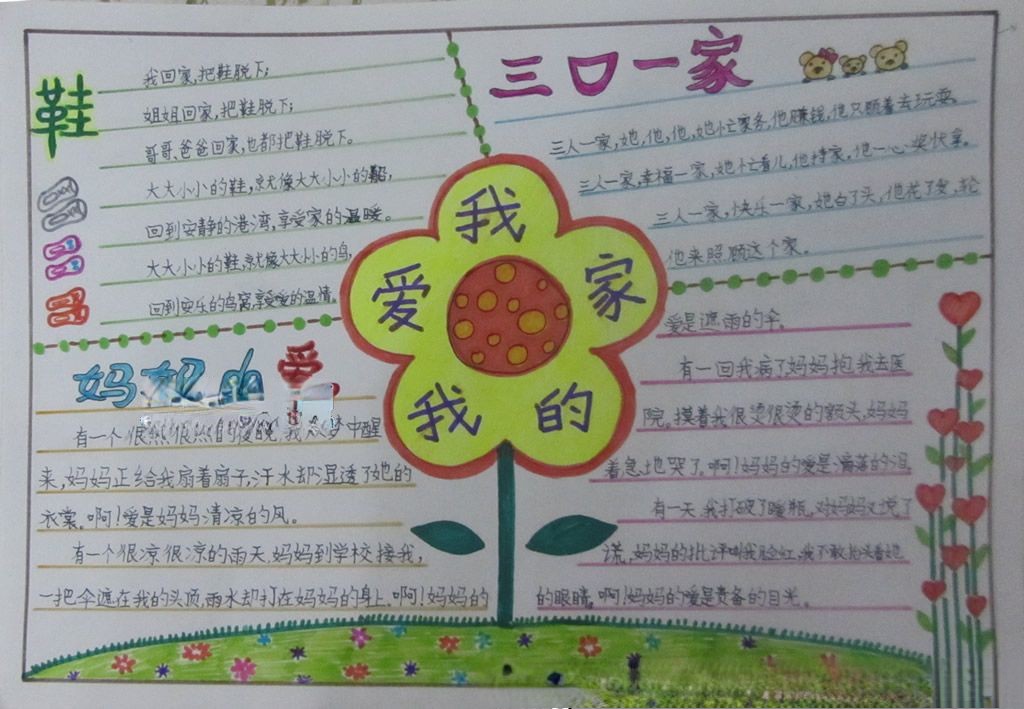 鞋
我回家,把鞋脱下;
姐姐回家,把鞋脱下;
哥哥、爸爸回家,也都把鞋脱下。
大大小小的鞋,就像大大小小的船,
回到安静的港湾,享受家的温暖。
大大小小的鞋,就像大大小小的鸟,
回到安乐的鸟窝,享受爱的温情。
三口一家
三人一家,她,他,他,她忙家务,他赚钱,他只顾着去玩耍。
三人一家,幸福一家,她忙着儿,他持家,他一心
三人一家,快乐一家,她白了头,他花了发,轮
他来照顾这个家。
我
爱 家
我 的
妈妈 爱
有一个很热很热的夜晚,我从梦中醒
来,妈妈正给我扇着扇子,汗水却湿透了她的
衣裳。啊!爱是妈妈清凉的风。
有一个很凉很凉的雨天,妈妈到学校接我,
一把伞遮在我的头顶,雨水却打在妈妈的身上。啊!妈妈的
爱是遮雨的伞。
有一回我病了,妈妈抱我去医
院。摸着我很烫很烫的额头,妈妈
着急地哭了。啊!妈妈的爱是滴落的泪
有一天,我打破了暖瓶,对妈妈又说了
谎,妈妈的批评叫我脸红,我不敢抬头看她
的眼睛。啊!妈妈的爱是责备的目光。